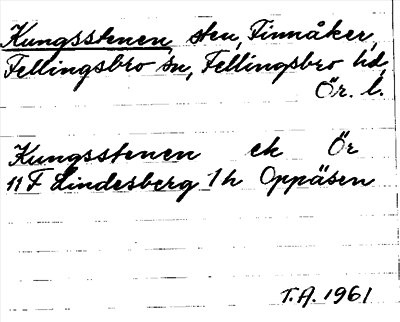 Kungsstenen, sten, Finnåker,
Fellingsbro sn, Fellingsbro hd,
Ör. l.
Kungsstenen ek Ör
11 F Lindesberg 1 h Oppåsen
T.A. 1961